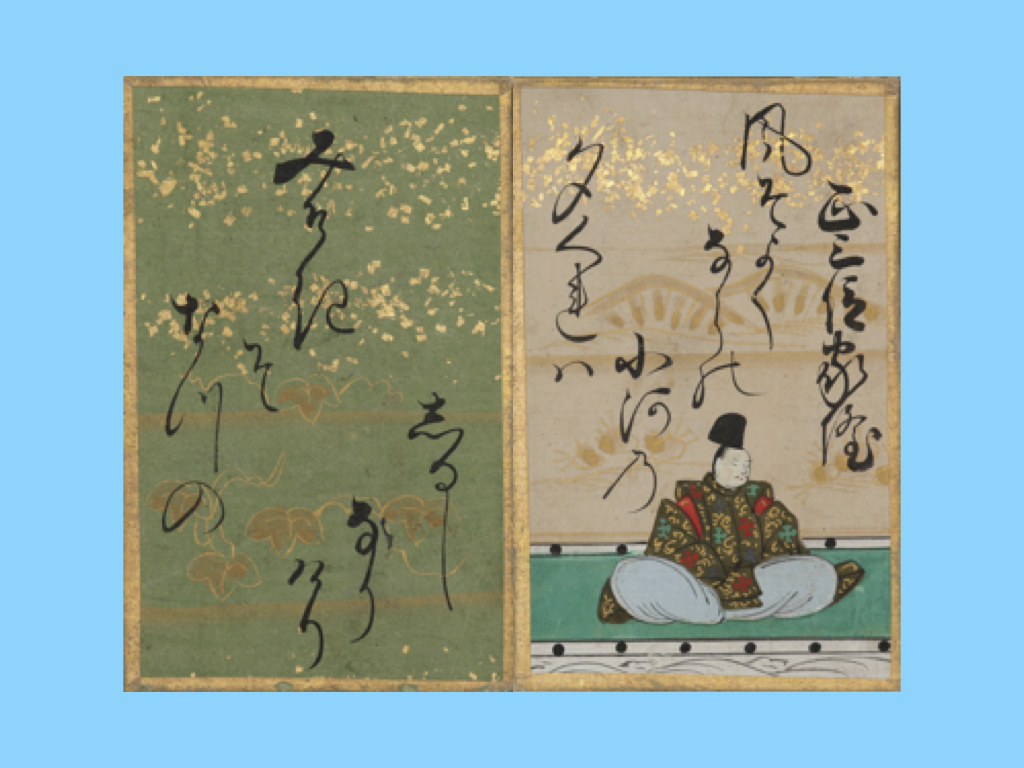 正三位家隆
風そよく
ならの
小河乃
夕くれハ
みそき
そ
なつの
しるし
なり
ける